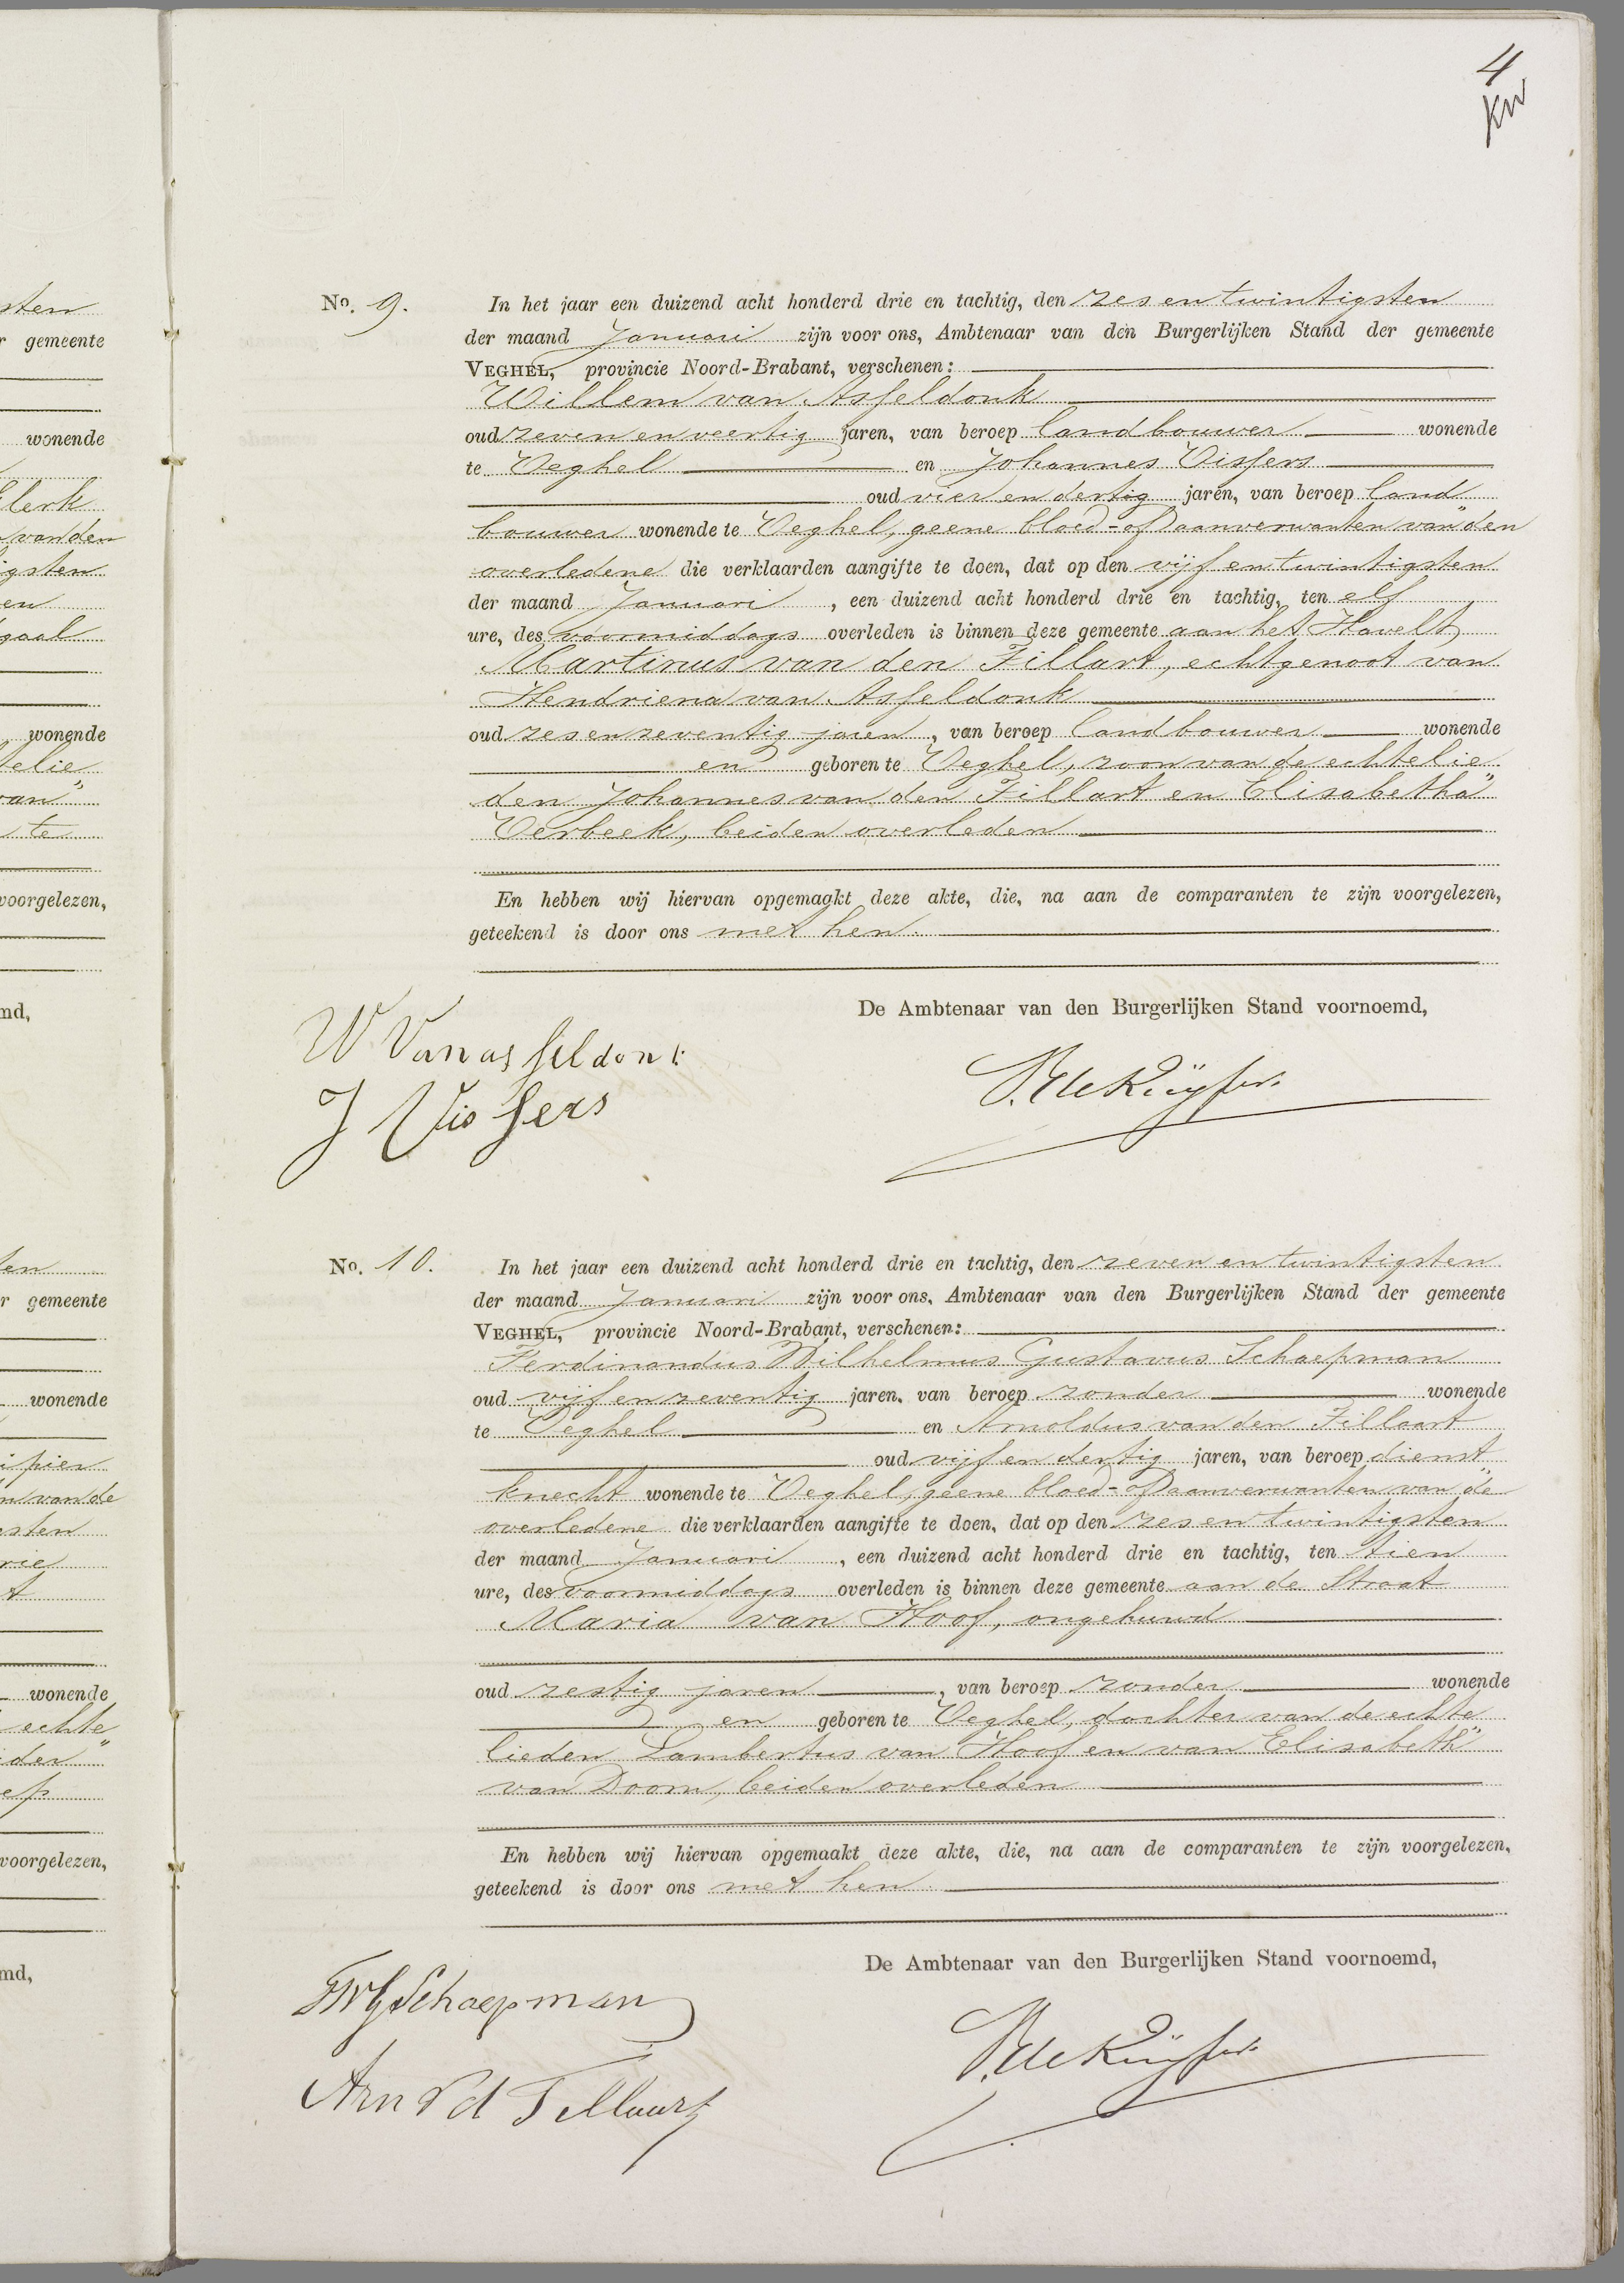 4
KW
sten
r gemeente
wonende
Clerk
van den
igsten
en
gaal
wonende
telie
van"
te
voorgelezen,
md,
No. 9. In het jaar een duizend acht honderd drie en tachtig, den zes en twintigsten
der maand Januari zijn voor ons, Ambtenaar van den Burgerlijken Stand der gemeente
VEGHEL, provincie Noord-Brabant, verschenen:
Willem van Asseldonk
oud zeven en veertig jaren, van beroep landbouwer wonende
te Veghel en Johannes Vissers
oud vier en dertig jaren, van beroep land
bouwer wonende te Veghel, geene bloed- of aanverwanten van" den
overledene die verklaarden aangifte te doen, dat op den vijf en twintigsten
der maand Januari, een duizend acht honderd drie en tachtig, ten elf
ure, des voormiddags overleden is binnen deze gemeente aan het Havelt
Martinus van den Tillart, echtgenoot van
Hendriena van Asseldonk
oud zes en zeventig jaren, van beroep landbouwer wonende
en geboren te Veghel, zoon van de echtelie
den Johannes van den Tillart en Elisabetha"
Verbeek, beiden overleden
En hebben wij hiervan opgemaakt deze akte, die, na aan de comparanten te zijn voorgelezen,
geteekend is door ons met hen.
De Ambtenaar van den Burgerlijken Stand voornoemd,
W Van asseldonk
J Vissers
ten
r gemeente
wonende
ipier
n van de
esten
rie
t
wonende
echte
iden"
ep
voorgelezen,
md,
No. 10. In het jaar een duizend acht honderd drie en tachtig, den zeven en twintigsten
der maand Januari zijn voor ons, Ambtenaar van den Burgerlijken Stand der gemeente
VEGHEL, provincie Noord-Brabant, verschenen:
Ferdinandus Wilhelmus Gustavus Schaepman
oud vijf en zeventig jaren, van beroep zonder wonende
te Veghel en Arnoldus van den Tillaart
oud vijf en dertig jaren, van beroep dienst
knecht wonende te Veghel, geene bloed- of aanverwanten van "de
overledene die verklaarden aangifte te doen, dat op den zes en twintigsten
der maand Januari, een duizend acht honderd drie en tachtig, ten tien
ure, des voormiddags overleden is binnen deze gemeente aan de Straat
Maria van Hoof, ongehuwd
oud zestig jaren, van beroep zonder wonende
en geboren te Veghel, dochter van de echte
lieden Lambertus van Hoof en van Elisabeth"
van Doorn, beiden overleden
En hebben wij hiervan opgemaakt deze akte, die, na aan de comparanten te zijn voorgelezen,
geteekend is door ons met hen.
De Ambtenaar van den Burgerlijken Stand voornoemd,
FWG Schaepman
Arn v d Tillaart